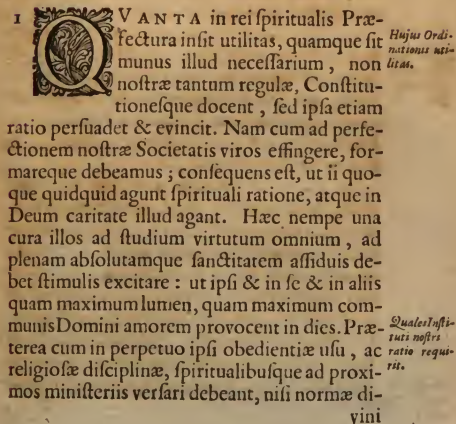 1 QVANTA in rei ſpiritualis Præ-
fectura inſit utilitas, quamque ſit
munus illud neceſſarium, non
noſtræ tantum regulæ, Conſtitu-
tioneſque docent, ſed ipſa etiam
ratio perſuadet & evincit. Nam cum ad perfe-
ctionem noſtræ Societatis viros effingere, for-
mareque debeamus; conſequens eſt, ut ii quo-
que quidquid agunt ſpirituali ratione, atque in
Deum caritate illud agant. Hæc nempe una
cura illos ad ſtudium virtutum omnium, ad
plenam abſolutamque ſanctitatem aſſiduis de-
bet ſtimulis excitare: ut ipſi & in ſe & in aliis
quam maximum lumen, quam maximum com-
munis Domini amorem provocent in dies. Præ-
terea cum in perpetuo ipſi obedientiæ uſu, ac
religioſæ diſciplinæ, ſpiritualibuſque ad proxi-
mos miniſteriis verſari debeant, niſi normæ di-
vini
Hujus Ordi-
nationis uti-
litas.
Quales Inſti-
tuti noſtri
ratio requi-
rit.